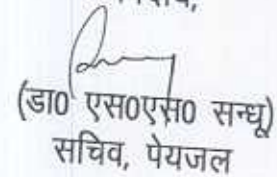 (डा0 एस0एस0 सन्धू)
सचिव, पेयजल